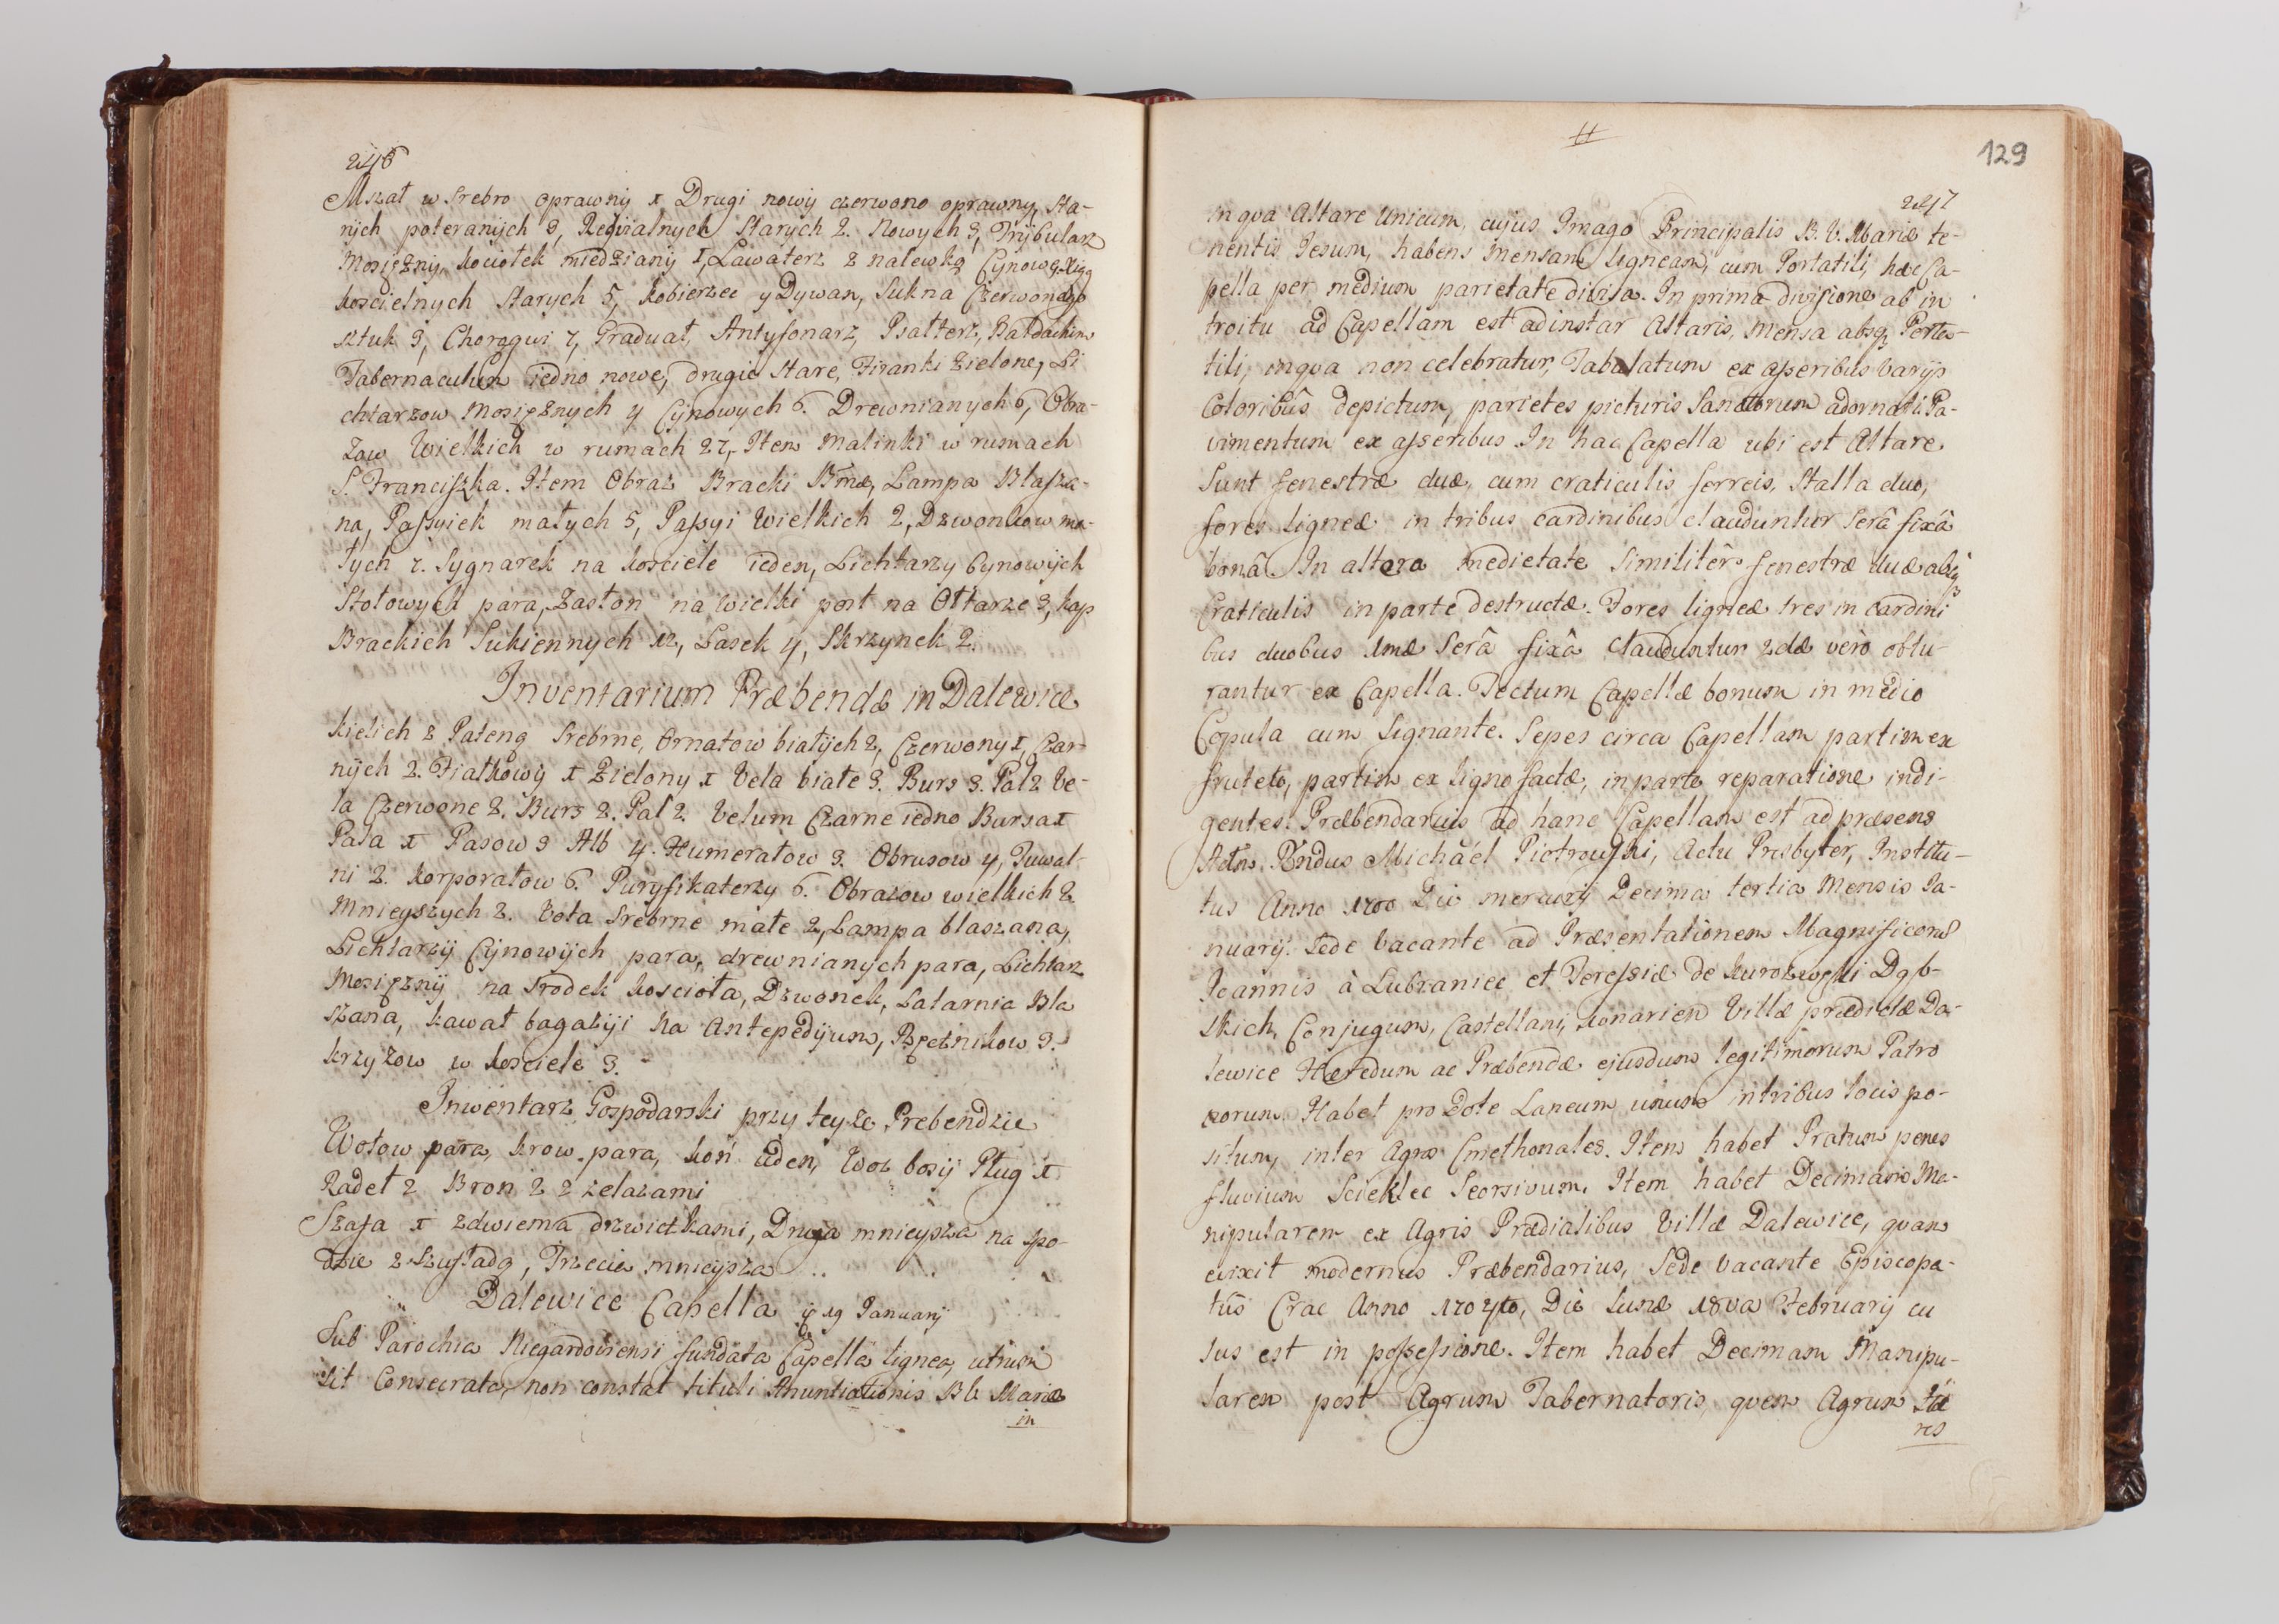 246
Mszał w srebro oprawny 1 Drugi nowy czerwono oprawny, sta-
rych poteranych 3, Requialnych starych 2. Nowych 3, Trybularz
Mosiężny, kociołek miedziany 1, Lawaterz z nalewką Cynową, Xiąg
koscielnych starych 5, kobierzec y Dywan, Sukna Czerwonego
sztuk 3, Chorągwi 7, Graduał, Antyfonarz, Psałterz, Baldachim
Tabernaculum iedno nowe, drugie stare, Firanki zielone, Li
chtarzow Mosiężnych 4 Cynowych 6. Drewnianych 6, Obra-
zow Wielkich w rumach 27, Item Malinki w rumach
S. Franciszka. Item Obraz Bracki Bmæ, Lampa Blasza-
na, Passyiek małych 5, Passyi Wielkich 2, Dzwonkow ma-
łych 7. Sygnarek na kosciele ieden, Lichtarzy Cynowych
Stołowych para, Zasłon na wielki post na Ołtarze 3, kap
Brackich Sukiennych 12, Lasek 4, Skrzynek 2.
Inventarium Præbendæ in Dalewice
kielich z Pateną Srebrne, Ornatow białych 2, Czerwony 1, Czar-
nych 2. Fiałkowy 1 Zielony 1 Vela białe 3. Burs 3. Pal 2 Ve-
la Czerwone 2. Burs 2. Pal 2. Velum Czarne iedno Bursa 1
Pala 1 Pasow 3 Alb 4. Humerałow 3. Obrusow 4, Tuwal-
ni 2. Korporałow 6. Puryfikaterzy 6. Obrazow wielkich 2
Mnieyszych 2. Vota Srebrne małe 2, Lampa blaszana,
Lichtarzy Cynowych para, drewnianych para, Lichtarz
Mosiężny na srodek koscioła, Dzwonek, Latarnia Bla
szana, kawał bagazyi na Antepedyum, Bębnikow 3.
krzyżow w kosciele 3.
Inwentarz Gospodarski przy teyże Prebendzie
Wołow para, krow para, koń ieden, Woz bosy Pług 1
Radeł 2 Bron 2 z zelazami
Szafa 1 zdwiema drzwiczkami, Druga mnieysza na spo-
dzie z szufladą, Trzecia mnieysza
Dalewice Capella 19 Januarij
Sub Parochia Niegardoviensi fundata Capella lignea, utrum
sit Consecrata, non constat tituli Anuntiationis BV Mariæ
in
129
247
in qva Altare Unicum, cujus Imago Principalis B. V. Mariæ te-
nentis Jesum, habens mensam ligneam, cum Portatili, hæc Ca-
pella per medium parietate divisa. In prima divisione ab in
troitu ad Capellam est adinstar Altaris, Mensa absq Porta-
tili, in qva non celebratur, Tabulatum ex asseribus varijs
Coloribûs depictum, parietes picturis Sanctorum adornati Pa-
vimentum ex asseribus In hac Capella ubi est Altare
Sunt fenestræ duæ, cum craticulis ferreis, Stalla duo,
fores ligneæ in tribus cardinibus clauduntur Serâ fixâ
bonâ. In altera medietate Similitêr fenestræ duæ absq
Craticulis in parte destructæ. Fores ligneæ tres in cardini
bus duobus 1mæ Serâ fixâ clauduntur 2dæ verò obtu-
rantur ex Capella. Tectum Capellæ bonum in medio
Copula cum Signante. Sepes circa Capellam partim ex
fruteto, partim ex ligno factæ, in parte reparatione indi-
gentes. Præbendarius ad hanc Capellam est ad præsens
Adm. Rndus Michaël Piotrowski, Actu Presbyter, Institu-
tus Anno 1700 Die mercurij Decima tertia Mensis Ja-
nuarij. Sede Vacante ad Præsentationem Magnificorum
Joannis à Lubraniec et Teressiæ de Kurozweki Dąb-
skich, Conjugum, Castellani, konarien Villæ prædictæ Da-
lewice Hæredum ac Præbendæ ejusdum legitimorum Patro
norum. Habet pro Dote Laneum unum in tribus locis po-
situm, inter Agros Cmethonales. Item habet Pratum penes
fluvium Scieklec Seorsivum. Item habet Decimam Ma-
nipularem ex Agris Prædialibus Villæ Dalewice, qvam
evixit modernus Præbendarius, Sede Vacante Episcopa-
tûs Crac Anno 1704to, Die Lunæ 18va Februarij cu
jus est in possessione. Item habet Decimam Manipu-
larem post Agrum Tabernatoris, qvem Agrum Hæ
res